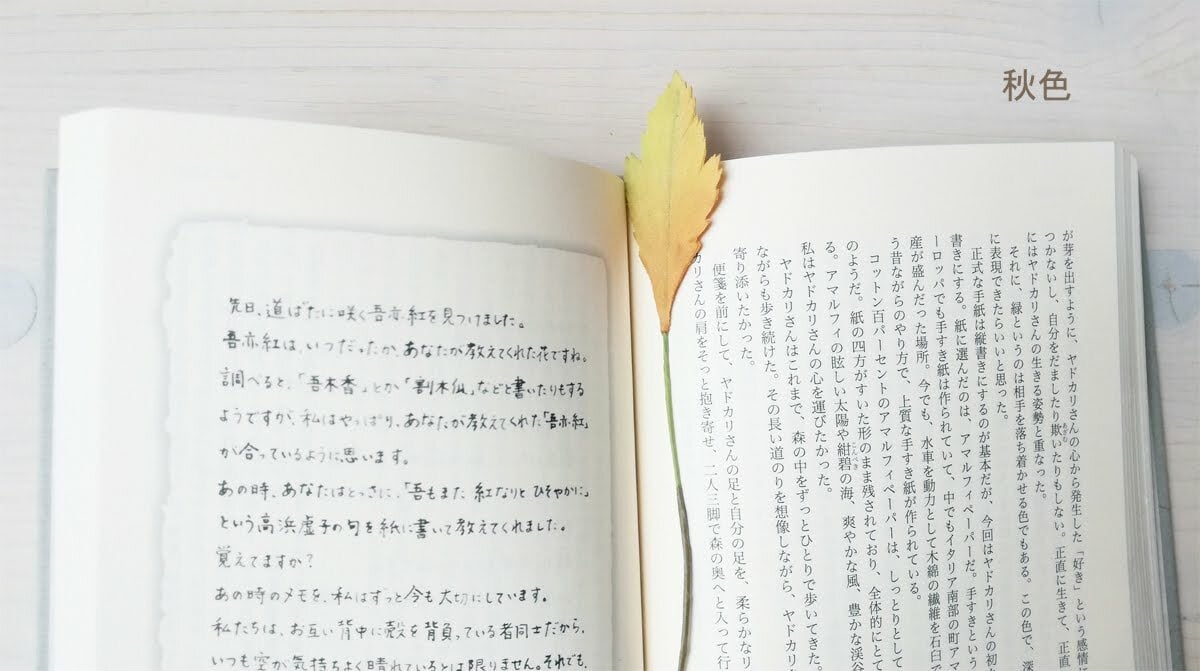 秋色
先日、道ばたに咲く吾亦紅を見つけました。
吾亦紅は、いつだったか、あなたが教えてくれた花ですね。
調べると、「吾木香」とか「割木瓜」などと書いたりもする
ようですが、私はやっぱり、あなたが教えてくれた「吾亦紅」
が合っているように思います。
あの時、あなたはとっさに、「吾もまた 紅なりと ひそやかに」
という高浜虚子の句を紙に書いて教えてくれました。
覚えてますか?
あの時のメモを、私はずっと今も大切にしています。
私たちは、お互い背中に殻を背負っている者同士だから、
いつも空が気持ちよく晴れているとは限りません。それでも、
が芽を出すように、ヤドカリさんの心から発生した「好き」という感情に
つかないし、自分をだましたり欺いたりもしない。正直に生きて、正直
にはヤドカリさんの生きる姿勢と重なった。
それに、緑というのは相手を落ち着かせる色でもある。この色で、深
に表現できたらいいと思った。
正式な手紙は縦書きにするのが基本だが、今回はヤドカリさんの初
書きにする。紙に選んだのは、アマルフィペーパーだ。手すきという
ーロッパでも手すき紙は作られていて、中でもイタリア南部の町ア
産が盛んだった場所。今でも、水車を動力として木綿の繊維を石臼で
う昔ながらのやり方で、上質な手すき紙が作られている。
コットン百パーセントのアマルフィペーパーは、しっとりとして
のようだ。紙の四方がすいた形のまま残されており、全体的にとて
る。アマルフィの眩しい太陽や紺碧の海、爽やかな風、豊かな渓谷
私はヤドカリさんの心を運びたかった。
ヤドカリさんはこれまで、森の中をずっとひとりで歩いてきた。
ながらも歩き続けた。その長い道のりを想像しながら、ヤドカリ
寄り添いたかった。
便箋を前にして、ヤドカリさんの足と自分の足を、柔らかなリ
カリさんの肩をそっと抱き寄せ、二人三脚で森の奥へと入って行